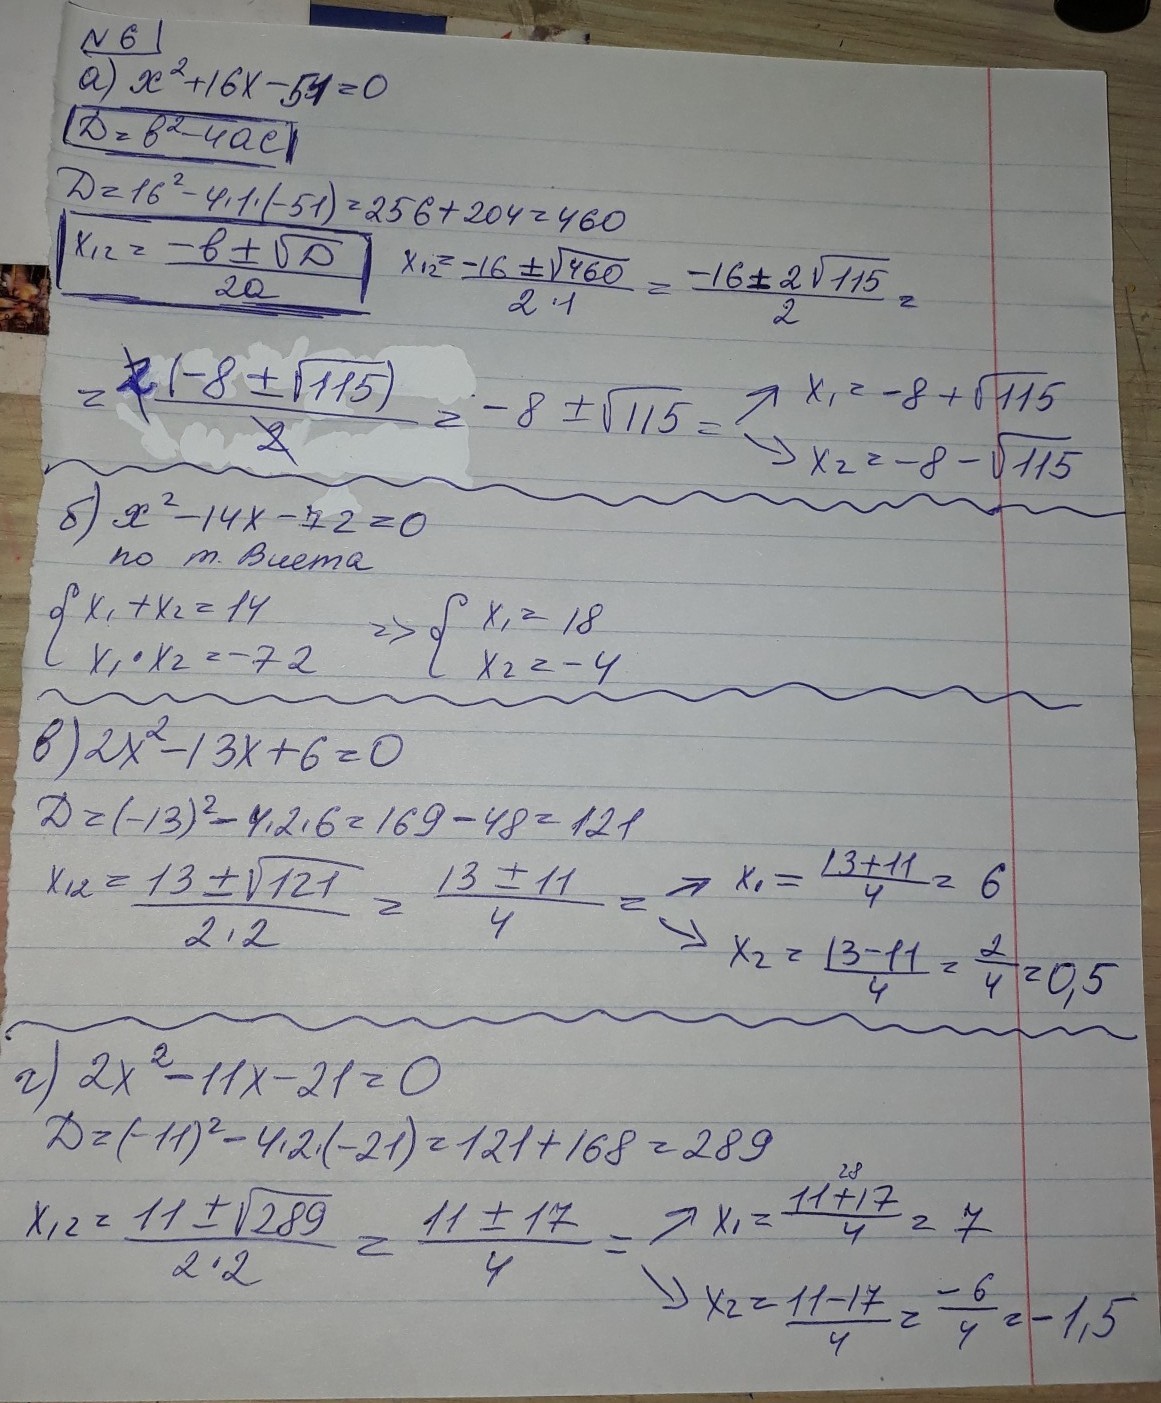 № 6
а) x²+16x-51=0
D=b²-4ac
D=16²-4·1·(-51)=256+204=460
x₁₂ = (-b±√D)/(2a) x₁₂=(-16±√460)/(2·1) = (-16±2√115)/2 =
= 2(-8±√115)/2 = -8±√115 = ↗ x₁=-8+√115
↘ x₂=-8-√115
б) x²-14x-72=0
по т. Виета
{ x₁+x₂=14 => { x₁=18
x₁·x₂=-72 x₂=-4
в) 2x²-13x+6=0
D=(-13)²-4·2·6=169-48=121
x₁₂=(13±√121)/(2·2) = (13±11)/4 = ↗ x₁=(13+11)/4=6
↘ x₂=(13-11)/4=2/4=0,5
г) 2x²-11x-21=0
D=(-11)²-4·2·(-21)=121+168=289
28
x₁₂=(11±√289)/(2·2) = (11±17)/4 = ↗ x₁=(11+17)/4=7
↘ x₂=(11-17)/4=-6/4=-1,5